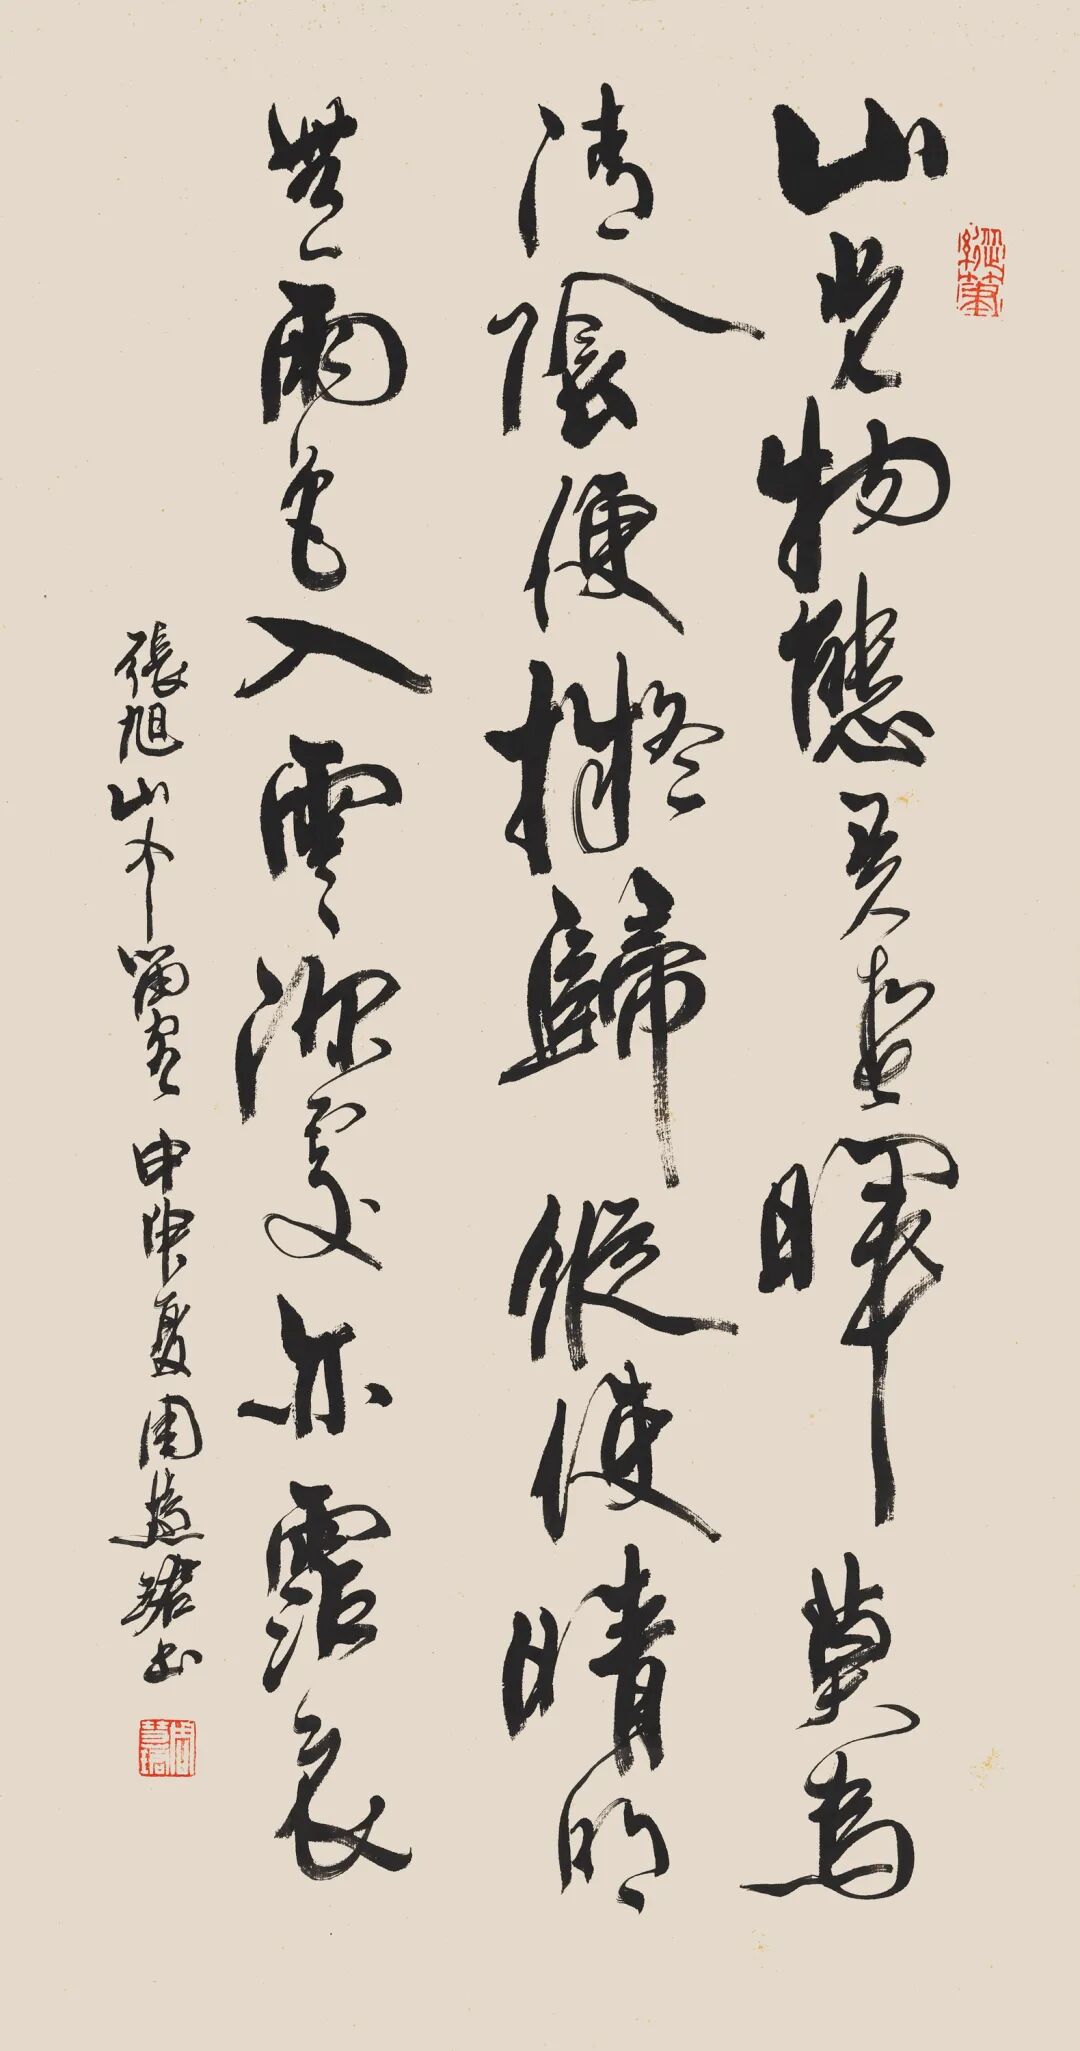 縱筆
山光物態弄春暉莫為
清陰便擬歸縱使晴明
無雨色入雲深處亦霑衣
張旭山中留客 甲申夏周慧珺書
周慧珺